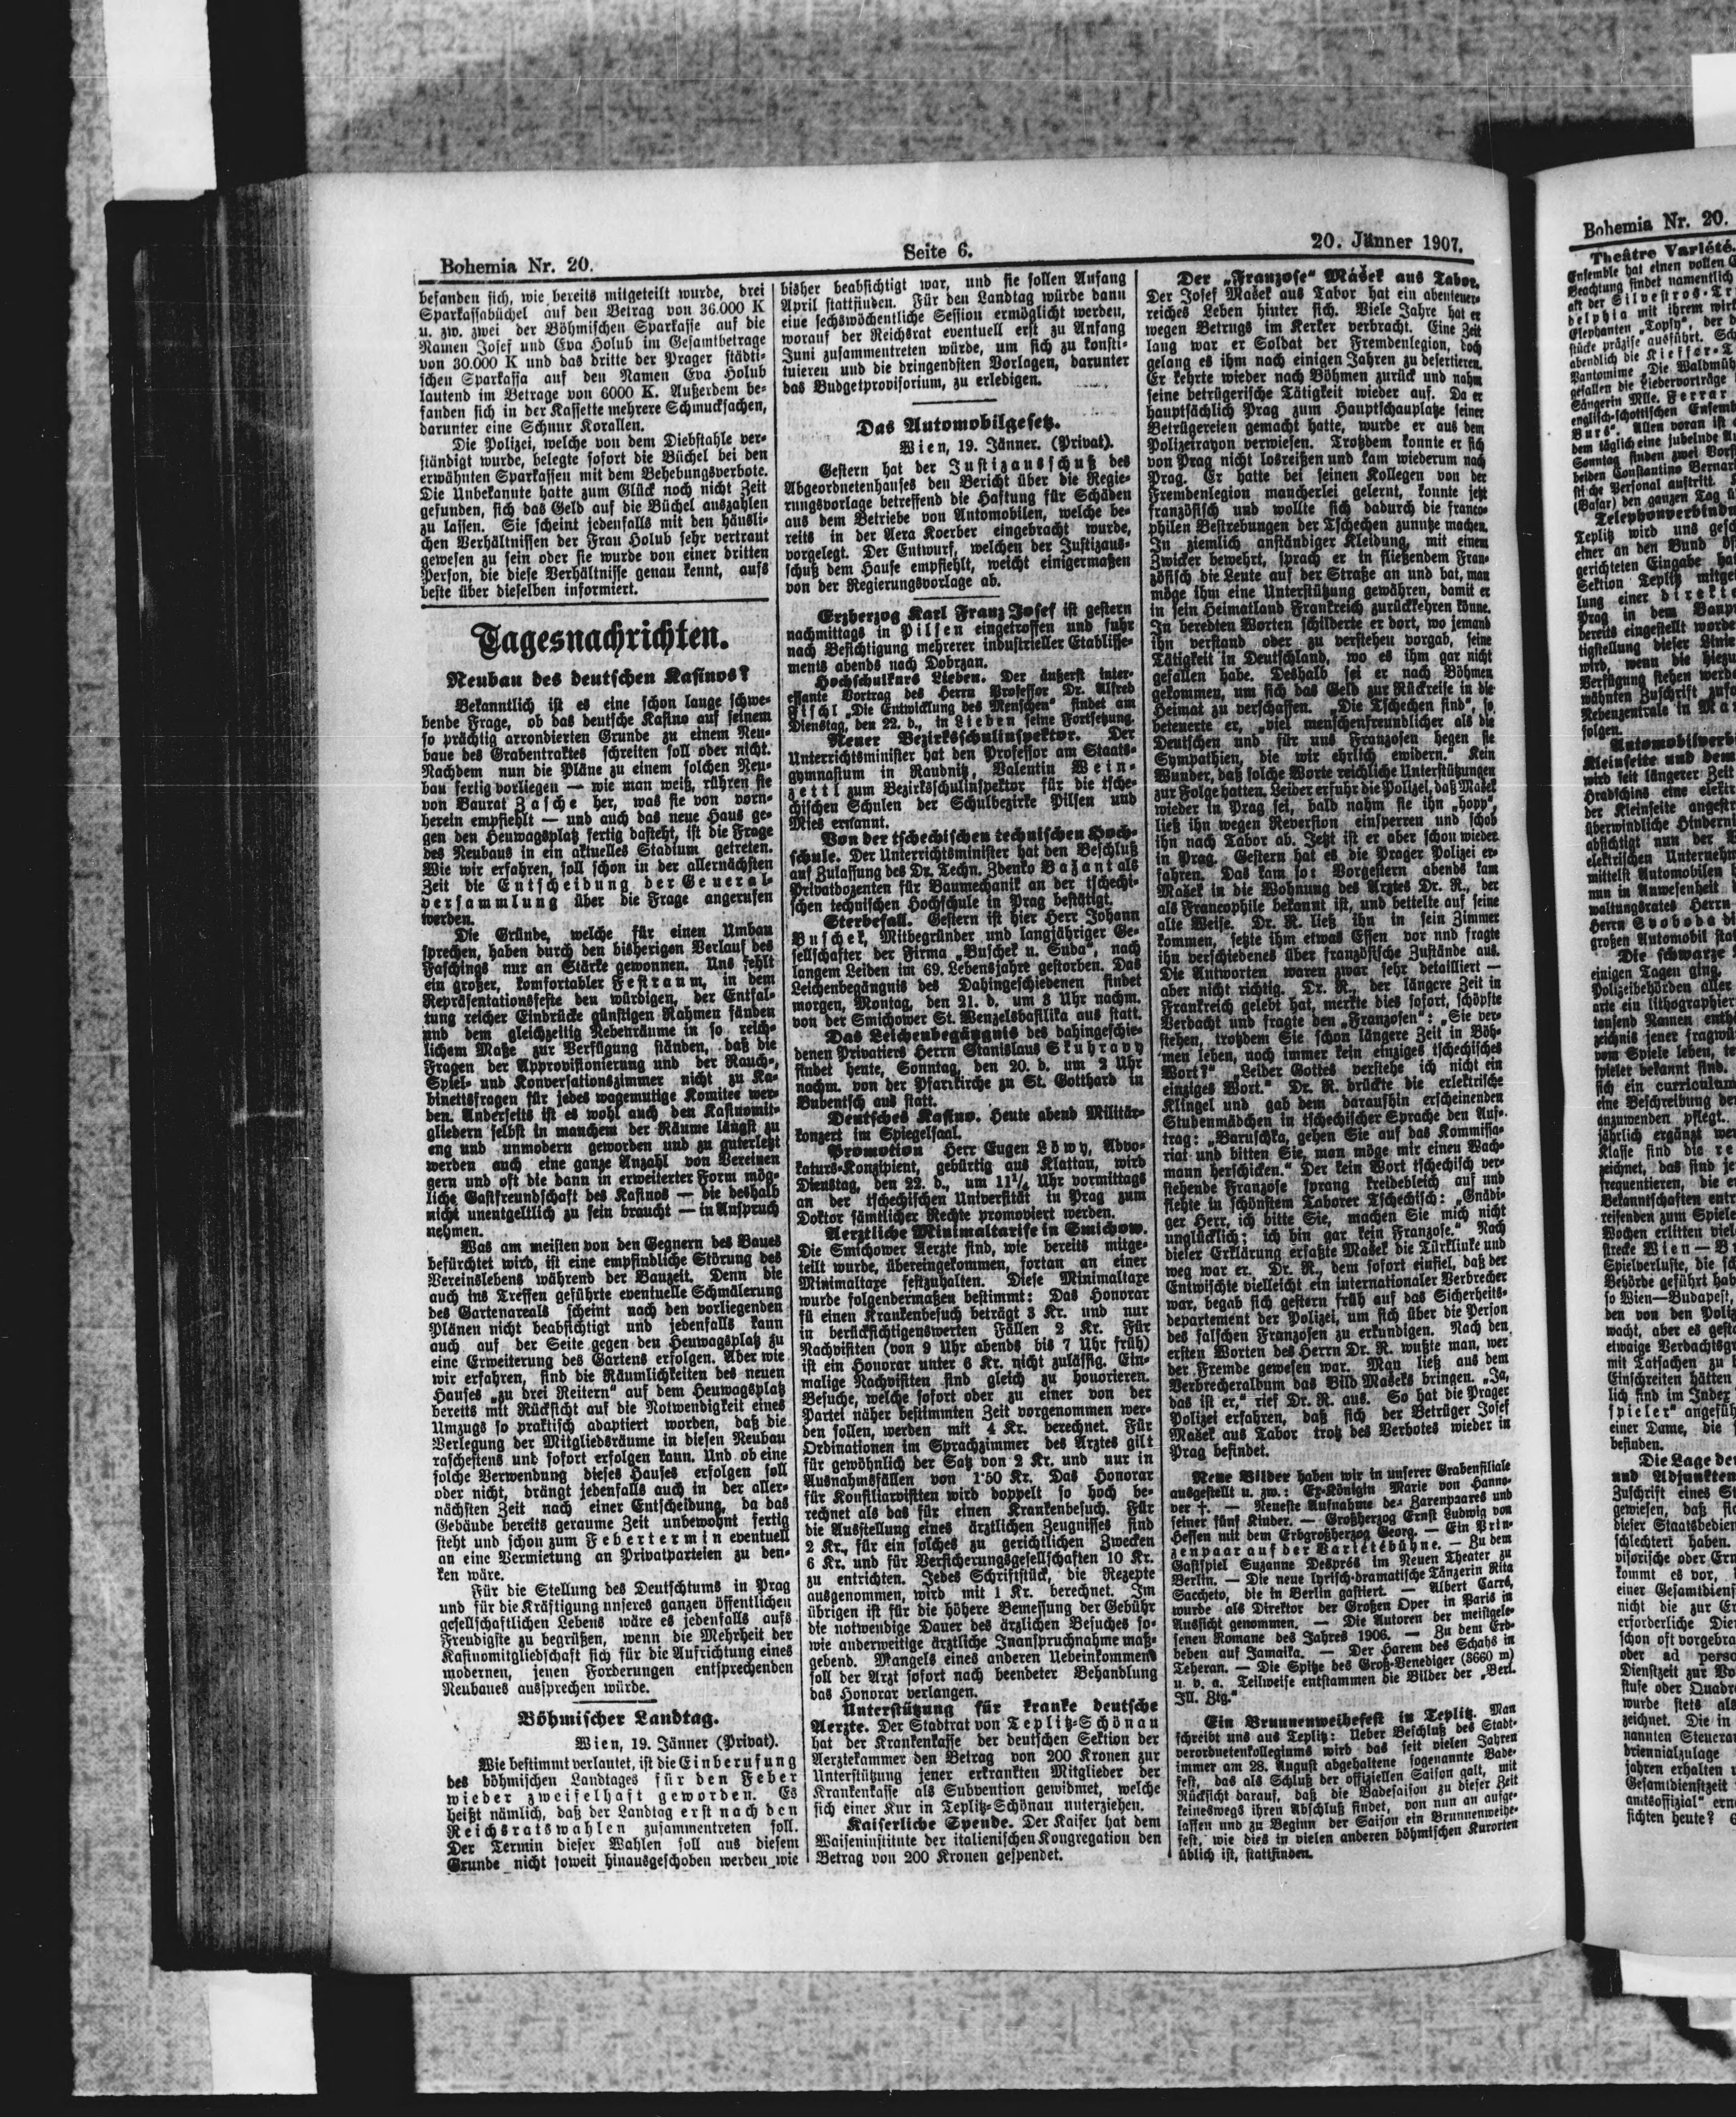 Bohemia Nr. 20.
Seite 6.
20. Jänner 1907.
befanden sich, wie bereits mitgeteilt wurde, drei
Sparkassabüchel auf den Betrag von 36.000 K
u. zw. zwei der Böhmischen Sparkasse auf die
Namen Josef und Eva Holub im Gesamtbetrage
von 30.000 K und das dritte der Prager städti-
schen Sparkassa auf den Namen Eva Holub
lautend im Betrage von 6000 K. Außerdem be-
fanden sich in der Kassette mehrere Schmucksachen,
darunter eine Schnur Korallen.
Die Polizei, welche von dem Diebstahle ver-
ständigt wurde, belegte sofort die Büchel bei den
erwähnten Sparkassen mit dem Behebungsverbote.
Die Unbekannte hatte zum Glück noch nicht Zeit
gefunden, sich das Geld auf die Büchel auszahlen
zu lassen. Sie scheint jedenfalls mit den häusli-
chen Verhältnissen der Frau Holub sehr vertraut
gewesen zu sein oder sie wurde von einer dritten
Person, die diese Verhältnisse genau kennt, aufs
beste über dieselben informiert.
Tagesnachrichten.
Neubau des deutschen Kasinos?
Bekanntlich ist es eine schon lange schwe-
bende Frage, ob das deutsche Kasino auf seinem
so prächtig arrondierten Grunde zu einem Neu-
baue des Grabentraktes schreiten soll oder nicht.
Nachdem nun die Pläne zu einem solchen Neu-
bau fertig vorliegen — wie man weiß, rühren sie
von Baurat Zasche her, was sie von vorn-
herein empfiehlt — und auch das neue Haus ge-
gen den Heuwagsplatz fertig dasteht, ist die Frage
des Neubaus in ein aktuelles Stadium getreten.
Wie wir erfahren, soll schon in der allernächsten
Zeit die Entscheidung der General-
versammlung über die Frage angerufen
werden.
Die Gründe, welche für einen Umbau
sprechen, haben durch den bisherigen Verlauf des
Faschings nur an Stärke gewonnen. Uns fehlt
ein großer, komfortabler Festraum, in dem
Repräsentationsfeste den würdigen, der Entfal-
tung reicher Eindrücke günstigen Rahmen fänden
und dem gleichzeitig Nebenräume in so reich-
lichem Maße zur Verfügung ständen, daß die
Fragen der Approvisionierung und der Rauch-,
Spiel- und Konversationszimmer nicht zu Ka-
binettsfragen für jedes wagemutige Komitee wer-
den. Anderseits ist es wohl auch den Kasinomit-
gliedern selbst in manchem der Räume längst zu
eng und unmodern geworden und zu guterletzt
werden auch eine ganze Anzahl von Vereinen
gern und oft die dann in erweiterter Form mög-
liche Gastfreundschaft des Kasinos — die deshalb
nicht unentgeltlich zu sein braucht — in Anspruch
nehmen.
Was am meisten von den Gegnern des Baues
befürchtet wird, ist eine empfindliche Störung des
Vereinslebens während der Bauzeit. Denn die
auch ins Treffen geführte eventuelle Schmälerung
des Gartenareals scheint nach den vorliegenden
Plänen nicht beabsichtigt und jedenfalls kann
auch auf der Seite gegen den Heuwagsplatz zu
eine Erweiterung des Gartens erfolgen. Aber wie
wir erfahren, sind die Räumlichkeiten des neuen
Hauses „zu drei Reitern“ auf dem Heuwagsplatz
bereits mit Rücksicht auf die Notwendigkeit eines
Umzugs so praktisch adaptiert worden, daß die
Verlegung der Mitgliedsräume in diesen Neubau
raschestens und sofort erfolgen kann. Und ob eine
solche Verwendung dieses Hauses erfolgen soll
oder nicht, drängt jedenfalls auch in der aller-
nächsten Zeit nach einer Entscheidung, da das
Gebäude bereits geraume Zeit unbewohnt fertig
steht und schon zum Febertermin eventuell
an eine Vermietung an Privatparteien zu den-
ken wäre.
Für die Stellung des Deutschtums in Prag
und für die Kräftigung unseres ganzen öffentlichen
gesellschaftlichen Lebens wäre es jedenfalls aufs
Freudigste zu begrüßen, wenn die Mehrheit der
Kasinomitgliedschaft sich für die Aufrichtung eines
modernen, jenen Forderungen entsprechenden
Neubaues aussprechen würde.
Böhmischer Landtag.
Wien, 19. Jänner (Privat).
Wie bestimmt verlautet, ist die Einberufung
des böhmischen Landtages für den Feber
wieder zweifelhaft geworden. Es
heißt nämlich, daß der Landtag erst nach den
Reichsratswahlen zusammentreten soll.
Der Termin dieser Wahlen soll aus diesem
Grunde nicht soweit hinausgeschoben werden wie
bisher beabsichtigt war, und sie sollen Anfang
April stattfinden. Für den Landtag würde dann
eine sechswöchentliche Session ermöglicht werden,
worauf der Reichsrat eventuell erst zu Anfang
Juni zusammentreten würde, um sich zu konsti-
tuieren und die dringendsten Vorlagen, darunter
das Budgetprovisorium, zu erledigen.
Das Automobilgesetz.
Wien, 19. Jänner. (Privat).
Gestern hat der Justizausschuß des
Abgeordnetenhauses den Bericht über die Regie-
rungsvorlage betreffend die Haftung für Schäden
aus dem Betriebe von Automobilen, welche be-
reits in der Aera Koerber eingebracht wurde,
vorgelegt. Der Entwurf, welchen der Justizaus-
schuß dem Hause empfiehlt, weicht einigermaßen
von der Regierungsvorlage ab.
Erzherzog Karl Franz Josef ist gestern
nachmittags in Pilsen eingetroffen und fuhr
nach Besichtigung mehrerer industrieller Etablisse-
ments abends nach Dobrzan.
Hochschulkurs Lieben. Der äußerst inter-
essante Vortrag des Herrn Professor Dr. Alfred
Fischl „Die Entwicklung des Menschen“ findet am
Dienstag, den 22. d., in Lieben seine Fortsetzung.
Neuer Bezirksschulinspektor. Der
Unterrichtsminister hat den Professor am Staats-
gymnasium in Raudnitz, Valentin Wein-
zettl zum Bezirksschulinspektor für die tsche-
chischen Schulen der Schulbezirke Pilsen und
Mies ernannt.
Von der tschechischen technischen Hoch-
schule. Der Unterrichtsminister hat den Beschluß
auf Zulassung des Dr. Techn. Zdenko Bažant als
Privatdozenten für Baumechanik an der tschechi-
schen technischen Hochschule in Prag bestätigt.
Sterbefall. Gestern ist hier Herr Johann
Buschek, Mitbegründer und langjähriger Ge-
sellschafter der Firma „Buschek u. Suda“, nach
langem Leiden im 69. Lebensjahre gestorben. Das
Leichenbegängnis des Dahingeschiedenen findet
morgen, Montag, den 21. d. um 3 Uhr nachm.
von der Smichower St. Wenzelsbasilika aus statt.
Das Leichenbegängnis des dahingeschie-
denen Privatiers Herrn Stanislaus Skuhravy
findet heute, Sonntag, den 20. d. um 2 Uhr
nachm. von der Pfarrkirche zu St. Gotthard in
Bubentsch aus statt.
Deutsches Kasino. Heute abend Militär-
konzert im Spiegelsaal.
Promotion Herr Eugen Löwy, Advo-
katurs-Konzipient, gebürtig aus Klattau, wird
Dienstag, den 22. d., um 11¼ Uhr vormittags
an der tschechischen Universität in Prag zum
Doktor sämtlicher Rechte promoviert werden.
Aerztliche Minimaltarife in Smichow.
Die Smichower Aerzte sind, wie bereits mitge-
teilt wurde, übereingekommen, fortan an einer
Minimaltaxe festzuhalten. Diese Minimaltaxe
wurde folgendermaßen bestimmt: Das Honorar
fü einen Krankenbesuch beträgt 3 Kr. und nur
in berücksichtigenswerten Fällen 2 Kr. Für
Nachvisiten (von 9 Uhr abends bis 7 Uhr früh)
ist ein Honorar unter 6 Kr. nicht zulässig. Ein-
malige Nachvisiten sind gleich zu honorieren.
Besuche, welche sofort oder zu einer von der
Partei näher bestimmten Zeit vorgenommen wer-
den sollen, werden mit 4 Kr. berechnet. Für
Ordinationen im Sprachzimmer des Arztes gilt
für gewöhnlich der Satz von 2 Kr. und nur in
Ausnahmsfällen von 1·50 Kr. Das Honorar
für Konsiliarvisiten wird doppelt so hoch be-
rechnet als das für einen Krankenbesuch. Für
die Ausstellung eines ärztlichen Zeugnisses sind
2 Kr., für ein solches zu gerichtlichen Zwecken
6 Kr. und für Versicherungsgesellschaften 10 Kr.
zu entrichten. Jedes Schriftstück, die Rezepte
ausgenommen, wird mit 1 Kr. berechnet. Im
übrigen ist für die höhere Bemessung der Gebühr
die notwendige Dauer des ärzlichen Besuches so-
wie anderweitige ärztliche Inanspruchnahme maß-
gebend. Mangels eines anderen Uebeinkommens
soll der Arzt sofort nach beendeter Behandlung
das Honorar verlangen.
Unterstützung für kranke deutsche
Aerzte. Der Stadtrat von Teplitz-Schönau
hat der Krankenkasse der deutschen Sektion der
Aerztekammer den Betrag von 200 Kronen zur
Unterstützung jener erkrankten Mitglieder der
Krankenkasse als Subvention gewidmet, welche
sich einer Kur in Teplitz-Schönau unterziehen.
Kaiserliche Spende. Der Kaiser hat dem
Waiseninstitute der italienischen Kongregation den
Betrag von 200 Kronen gespendet.
Der „Franzose“ Mášek aus Tabor.
Der Josef Mašek aus Tabor hat ein abenteuer-
reiches Leben hinter sich. Viele Jahre hat er
wegen Betrugs im Kerker verbracht. Eine Zeit
lang war er Soldat der Fremdenlegion, doch
gelang es ihm nach einigen Jahren zu desertieren.
Er kehrte wieder nach Böhmen zurück und nahm
seine betrügerische Tätigkeit wieder auf. Da er
hauptsächlich Prag zum Hauptschauplatze seiner
Betrügereien gemacht hatte, wurde er aus dem
Polizeirayon verwiesen. Trotzdem konnte er sich
von Prag nicht losreißen und kam wiederum nach
Prag. Er hatte bei seinen Kollegen von der
Fremdenlegion mancherlei gelernt, konnte jetzt
französisch und wollte sich dadurch die franco-
philen Bestrebungen der Tschechen zunutze machen.
In ziemlich anständiger Kleidung, mit einem
Zwicker bewehrt, sprach er in fließendem Fran-
zösisch die Leute auf der Straße an und bat, man
möge ihm eine Unterstützung gewähren, damit er
in sein Heimatland Frankreich zurückkehren könne.
In beredten Worten schilderte er dort, wo jemand
ihn verstand oder zu verstehen vorgab, seine
Tätigkeit in Deutschland, wo es ihm gar nicht
gefallen habe. Deshalb sei er nach Böhmen
gekommen, um sich das Geld zur Rückreise in die
Heimat zu verschaffen. „Die Tschechen sind“, so
beteuerte er, „viel menschenfreundlicher als die
Deutschen und für uns Franzosen hegen sie
Sympathien, die wir ehrlich ewidern.“ Kein
Wunder, daß solche Worte reichliche Unterstützungen
zur Folge hatten. Leider erfuhr die Polizei, daß Mašek
wieder in Prag sei, bald nahm sie ihn „hopp“,
ließ ihn wegen Reversion einsperren und schob
ihn nach Tabor ab. Jetzt ist er aber schon wieder
in Prag. Gestern hat es die Prager Polizei er-
fahren. Das kam so: Vorgestern abends kam
Mašek in die Wohnung des Arztes Dr. R., der
als Francophile bekannt ist, und bettelte auf seine
alte Weise. Dr. R. ließ ihn in sein Zimmer
kommen, setzte ihm etwas Essen vor und fragte
ihn verschiedenes über französische Zustände aus.
Die Antworten waren zwar sehr detailliert —
aber nicht richtig. Dr. R., der längere Zeit in
Frankreich gelebt hat, merkte dies sofort, schöpfte
Verdacht und fragte den „Franzosen“: „Sie ver-
stehen, trotzdem Sie schon längere Zeit in Böh-
men leben, noch immer kein einziges tschechisches
Wort?“ „Leider Gottes verstehe ich nicht ein
einziges Wort.“ Dr. R. drückte die erlektrische
Klingel und gab dem daraufhin erscheinenden
Stubenmädchen in tschechischer Sprache den Auf-
trag: „Baruschka, gehen Sie auf das Kommissa-
riat und bitten Sie, man möge mir einen Wach-
mann herschicken.“ Der kein Wort tschechisch ver-
stehende Franzose sprang kreidebleich auf und
flehte in schönstem Taborer Tschechisch: „Gnädi-
ger Herr, ich bitte Sie, machen Sie mich nicht
unglücklich; ich bin gar kein Franzose.“ Nach
dieser Erklärung erfaßte Mašek die Türklinke und
weg war er. Dr. R., dem sofort einfiel, daß der
Entwischte vielleicht ein internationaler Verbrecher
war, begab sich gestern früh auf das Sicherheits-
departement der Polizei, um sich über die Person
des falschen Franzosen zu erkundigen. Nach den
ersten Worten des Herrn Dr. R. wußte man, wer
der Fremde gewesen war. Man ließ aus dem
Verbrecheralbum das Bild Mašeks bringen. „Ja,
das ist er,“ rief Dr. R. aus. So hat die Prager
Polizei erfahren, daß sich der Betrüger Josef
Mašek aus Tabor trotz des Verbotes wieder in
Prag befindet.
Neue Bilder haben wir in unserer Grabenfiliale
ausgestellt u. zw.: Ex-Königin Marie von Hanno-
ver †. — Neueste Aufnahme des Zarenpaares und
seiner fünf Kinder. — Großherzog Ernst Ludwig von
Hessen mit dem Erbgroßherzog Georg. — Ein Prin-
zenpaar auf der Varietébühne. — Zu dem
Gastspiel Suzanne Desprès im Neuen Theater zu
Berlin. — Die neue lyrisch-dramatische Tänzerin Rita
Saccheto, die in Berlin gastiert. — Albert Carré,
wurde als Direktor der Großen Oper in Paris in
Aussicht genommen. — Die Autoren der meistgele-
senen Romane des Jahres 1906. — Zu dem Erd-
beben auf Jamaika. — Der Harem des Schahs in
Teheran. — Die Spitze des Groß-Venediger (3660 m)
u. v. a. Teilweise entstammen die Bilder der „Berl.
Ill. Ztg.“
Ein Brunnenweihefest in Teplitz. Man
schreibt uns aus Teplitz: Ueber Beschluß des Stadt-
verordnetenkollegiums wird das seit vielen Jahren
immer am 28. August abgehaltene sogenannte Bade-
fest, das als Schluß der offiziellen Saison galt, mit
Rücksicht darauf, daß die Badesaison zu dieser Zeit
keineswegs ihren Abschluß findet, von nun an aufge-
lassen und zu Beginn der Saison ein Brunnenweihe-
fest, wie dies in vielen anderen böhmischen Kurorten
üblich ist, stattfinden.
Bohemia Nr. 20.
Theâtre Variété.
Ensemble hat einen vollen
Beachtung findet namentlich
delphia mit ihrem
Elephanten „Topsy“, der
stücke präzise ausführt.
abendlich die
Pantomime. Die
gefallen die Liedervorträge
Sängerin Mlle. Ferrar
englisch-schottischen
Burs“. Allen voran ist
dem täglich eine jubelnde
Sonntag finden zwei
beiden Constantino
Personal auftritt.
(Basar) den ganzen Tag
Teplitz wird uns
einer an den Bund
gerichteten Eingabe
Sektion Teplitz
lung einer
Prag in dem
bereits eingestellt
tigstellung dieser Linie
wird, wenn die
Verfügung stehen
wähnten Zuschrift
Nebenzentrale in
folgen.
Kleinseite und dem
wird seit längerer Zeit
Hradschins eine
der Kleinseite
überwindliche
absichtigt nun der
elektrischen
mittelst Automobilen
nun in Anwesenheit
waltungsrates Herrn
Herrn Svoboda
großen Automobil
Die schwarze
einigen Tagen ging,
Polizeibehörden aller
arte ein
tausend Namen
zeichnis jener
vom Spiele leben,
spieler bekannt sind.
sich ein curriculum
eine Beschreibung
anzuwenden pflegt.
jährlich ergänzt
Klasse sind die
zeichnet, das sind
frequentieren, die
Bekanntschaften
reisenden zum Spiele
Wochen erlitten
strecke Wien—
Spielverluste, die
Behörde geführt
so Wien—Budapest,
den von den
wacht, aber es
etwaige
mit Tatsachen zu
Einschreiten hätten
lich sind im Index
spieler“
einer Dame, die
befinden.
Die Lage der
und Adjunkten
Zuschrift eines
gewiesen, daß
dieser
schlechtert haben.
visorische oder
kommt es vor,
einer
nicht die zur
erforderliche
schon oft
oder ad
Dienstzeit zur
stufe oder
wurde stets als
zeichnet. Die in
nannten
driennialzulage
jahren erhalten
Gesamtdienstzeit
amtsoffizial“
sichten heute?